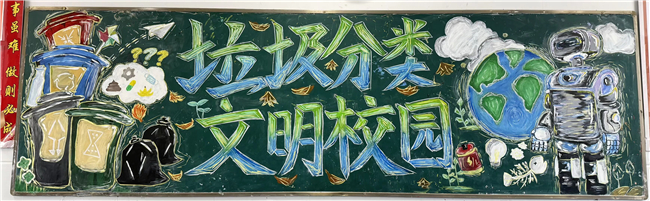 事虽难做则必成
垃圾分类
文明校园
???